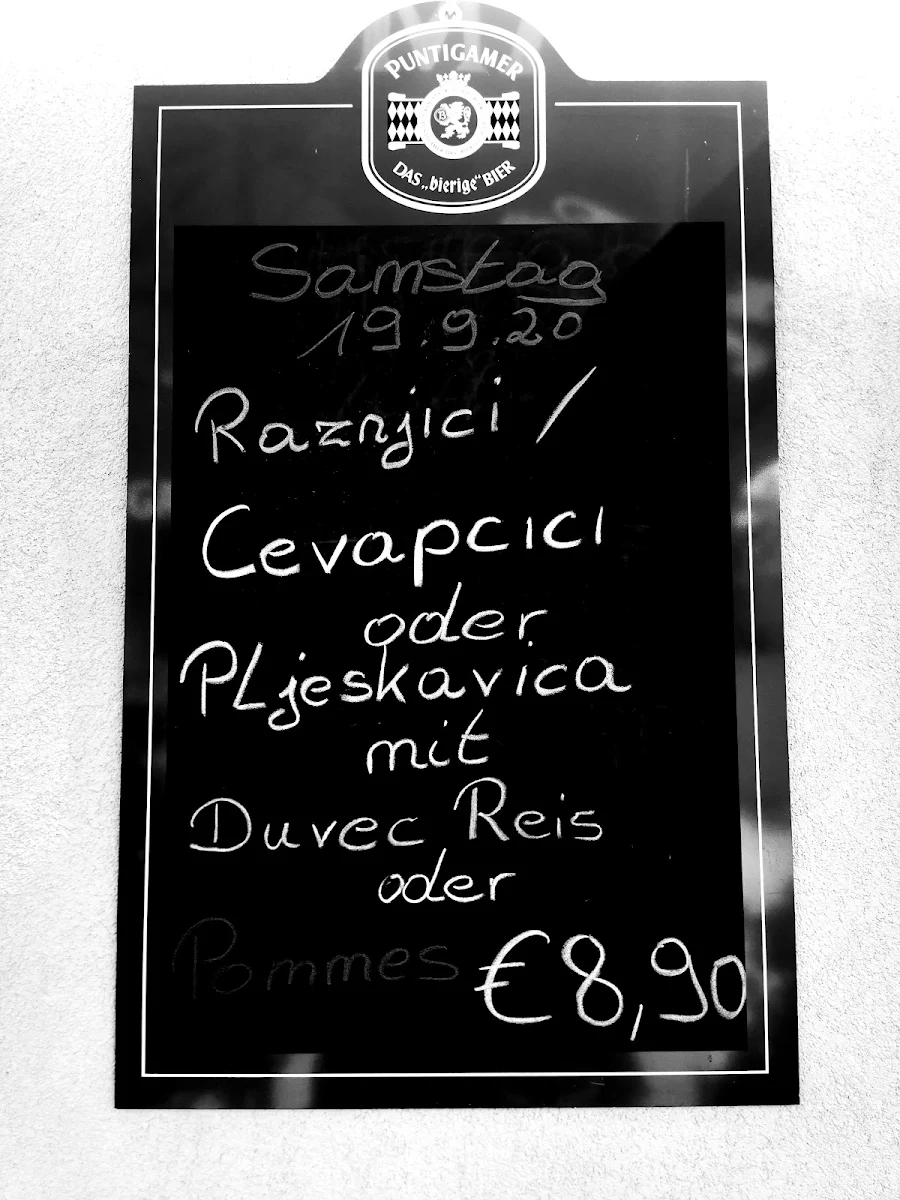 PUNTIGAMER
DAS „bierige“ BIER
Samstag
19.9.20
Raznjici /
Cevapcici
oder
PLjeskavica
mit
Duvec Reis
oder
Pommes €8,90